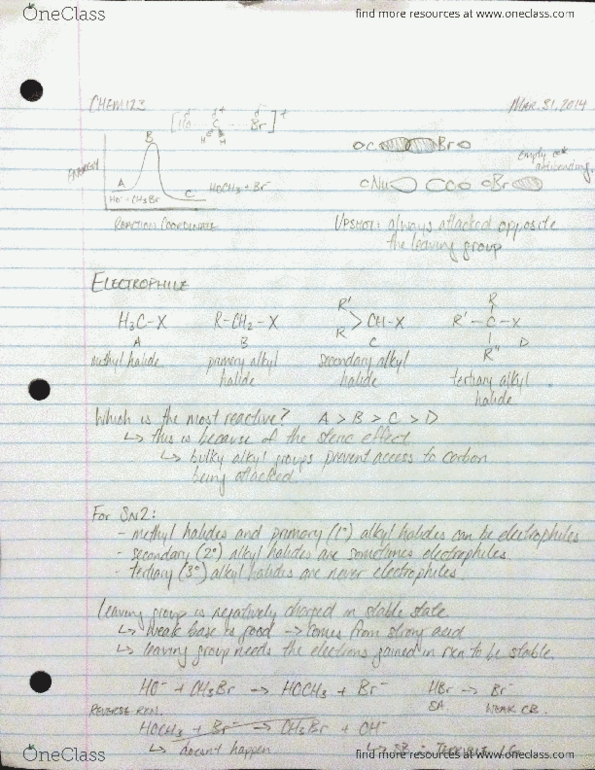 OneClass
find more resources at www.oneclass.com
CHEM 123
Mar. 31, 2014
B
ENERGY
A
C
HO⁻ + CH₃Br
HOCH₃ + Br⁻
REACTION COORDINATE
C Br
empty
antibonding
Nu C Br
UPSHOT: always attacked opposite
the leaving group
ELECTROPHILE
H₃C-X
R-CH₂-X
R'
R
CH-X
R
R'-C-X
R"
A
B
C
D
methyl halide
primary alkyl
halide
secondary alkyl
halide
tertiary alkyl
halide
Which is the most reactive? A > B > C > D
↳ this is because of the steric effect
↳ bulky alkyl groups prevent access to carbon
being attacked.
For SN2:
- methyl halides and primary (1°) alkyl halides can be electrophiles
- secondary (2°) alkyl halides are sometimes electrophiles
- tertiary (3°) alkyl halides are never electrophiles.
leaving group is negatively charged in stable state
↳ weak base is good → comes from strong acid
↳ leaving group needs the electrons gained in rxn to be stable.
HO⁻ + CH₃Br → HOCH₃ + Br⁻
HBr → Br⁻
SA
WEAK CB
REVERSE RXN.
HOCH₃ + Br⁻ → CH₃Br + OH⁻
↳ doesn't happen
OneClass
find more resources at www.oneclass.com